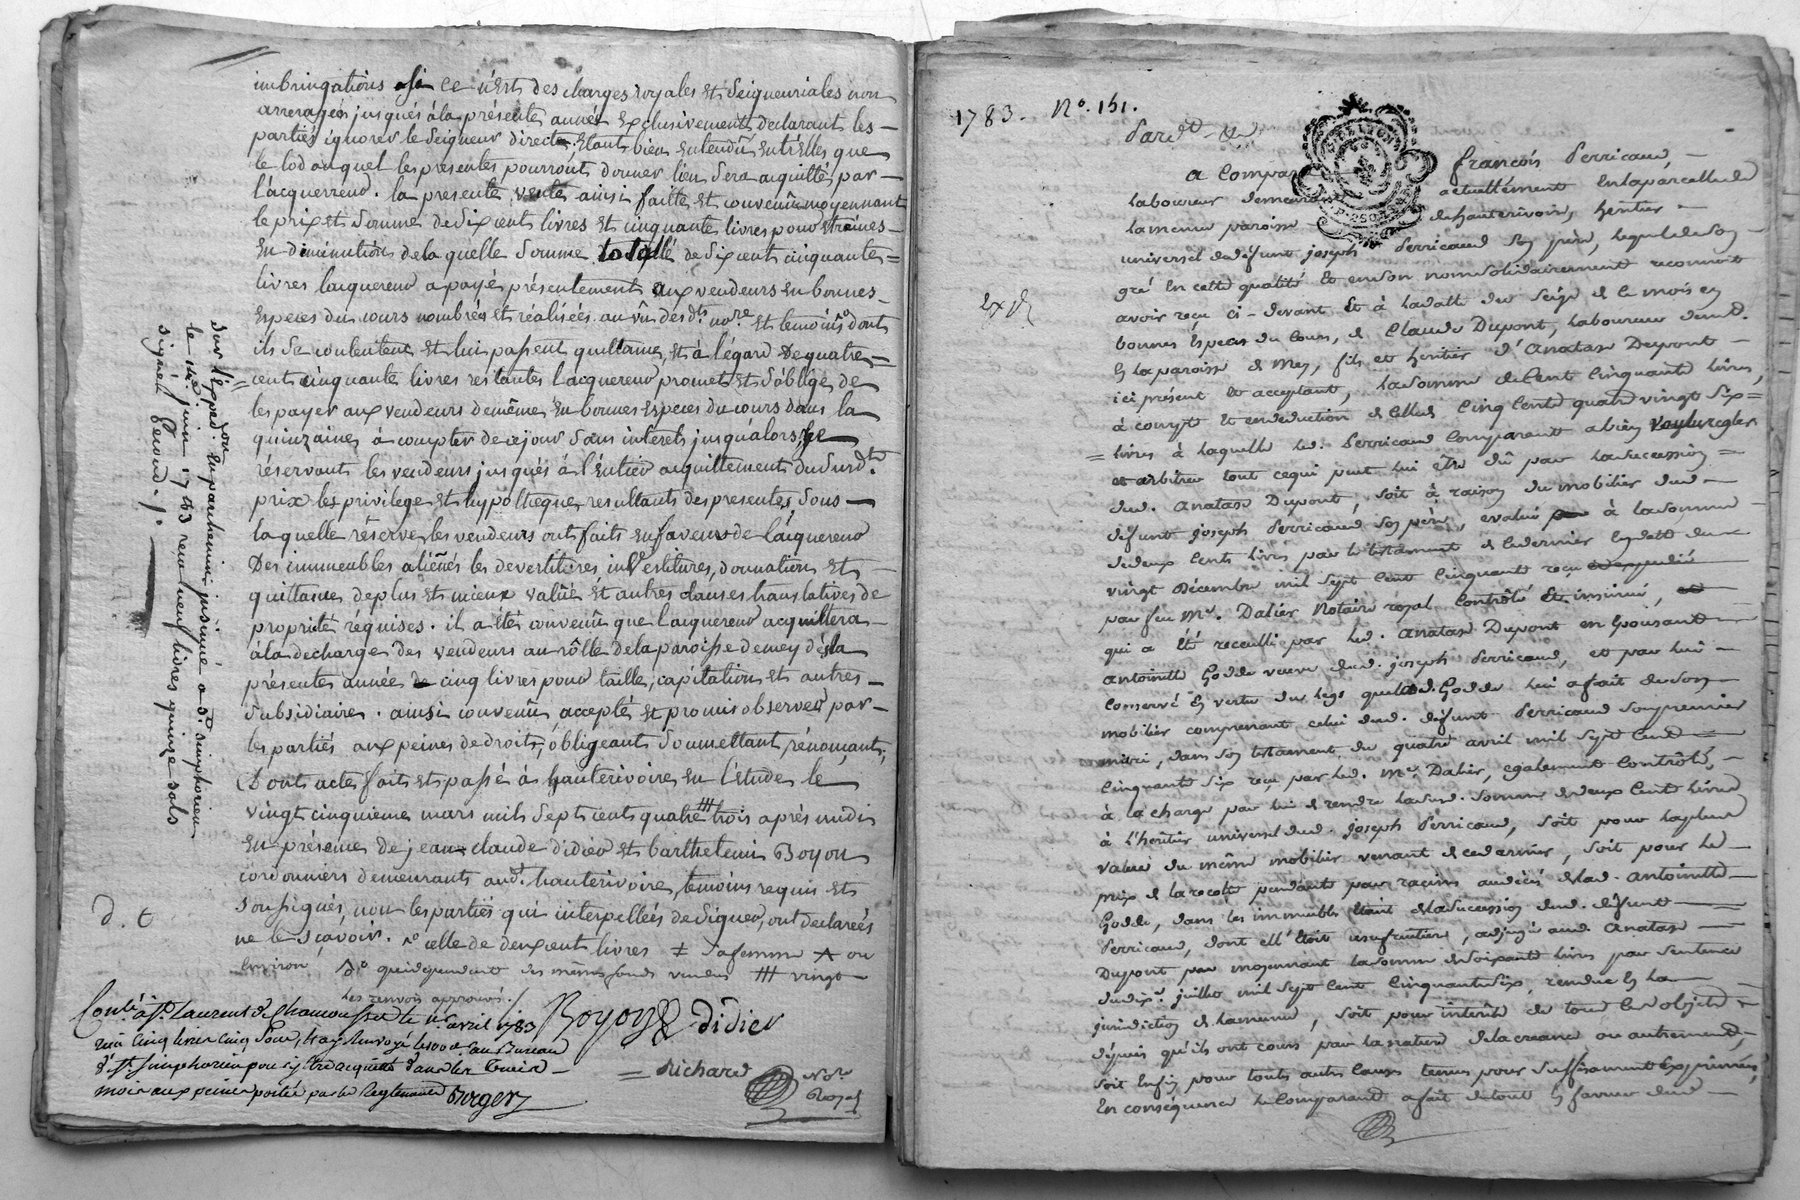 imbringations si ce n'est des charges royales et seigneuriales non
arreragés jusqués à la présente année exclusivement declarant les
parties ignorer le seigneur directe, etant bien entendû entr'elles que
le lod auquel les presentes pourront donner lieu sera acquitté par
l'acquerreur. la presente vente ainsi faitte et convenûe moyennant
le prix et somme de six cent livres et cinquante livres pour etreines
en diminution de la quelle somme totallé de six cent cinquante
livres l'acquereur a payé présentement aux vendeurs en bonnes
especes du cours nombrés et réalisées au vû desdts nore et temoins dont
ils se contentent et lui passent quittance, et à l'égard de quatre
cent cinquante livres restantes l'acquereur promet et s'oblige de
les payer aux vendeurs de même en bonnes especes du cours dans la
quinzaine à compter de ce jour sans interets jusqu'alors, se
réservant les vendeurs jusqués à l'entier acquittement dudit
prix les privilege et hypothèque resultants des presentes, sous
laquelle réserve, les vendeurs ont faits en faveur de l'acquereur
des immeubles aliénés les devestitures, investitures, donnations et
quittance de plus et mieux valûe et autres clauses translatives de
propriété réquises. il a été convenû que l'acquereur acquittera
à la decharge des vendeurs au rôlle de la paroisse de mey dès la
présente année cinq livres pour taille, capitation et autres
subsidiaire. ainsi convenû, accepté et promis observer par
les partiés aux peines de droits, obligeant, soumettant, rénonçant,
Dont acte fait et passé à hauterivoire en l'étude le
vingt cinquieme mars mil sept cent quatre ### trois après midi
en présence de jean claude didier et barthelemi Boyon
cordonniers demeurants aud. hauterivoire, temoins requis et
soussignés, non les partiés qui interpellées de signer, ont declarées
ne le sçavoir. celle de deux cent livres ‡ sa femme ou
environ des mêmes fonds vendus ### vingt
les renvois approuvés
Boyon didier
Richard Nore Royal
Conté à St. Laurent de Chamousset le avril 1783
reçu cinq livres cinq sous,
au Bureau
d'St. simphorien
mois aux peines portée par le Reglement Borger
d. t
sur l'exped. en parchemin insinué a St. simphorien
le juin 1783 reçu neuf livres quinze sols
signé
1783. No. 151.
Pardt
a Comparu françois Perricaud,
laboureur demeurant actuellement en la parcelle de
la meme paroisse de hauterivoire, heritier
universel de defunt joseph Perricaud son pere, lequel de son
gré en cette qualité et en son nom solidairement reconnoit
avoir reçu ci-devant et à la datte du seize de ce mois en
bonnes especes du cours, de Claude Dupont, laboureur demt.
en la paroisse de Mey, fils et heritier d'anatase Dupont
ici présent et acceptant, la somme de cent cinquante livres,
à compte et en deduction de celle de cinq cent quatre vingt six
livres à laquelle led. Perricaud comparant a bien voulu regler
et arbitrer tout ce qui peut lui être dû par la succession
dud. anatase Dupont, soit à raison du mobilier dud.
défunt joseph Perricaud son père, evalué à la somme
de deux cents livres par le testament de ce dernier en datte du
vingt Décembre mil sept cent cinquante reçu
par feu Me. Dalier Notaire royal Contrôlé et insinué,
qui a été receuilli par led. anatase Dupont en épousant
antoinette Godde veuve dud. joseph Perricaud, et par lui
conservé en vertu du legs que lad. Godde lui a fait de son
mobilier comprenant celui dud. défunt Perricaud son premier
mari, dans son testament du quatre avril mil sept cent
cinquante six reçu par led. Me. Dalier, egalement Contrôlé,
à la charge par lui de rendre lad. somme de deux cents livres
à l'héritier universel dud. joseph Perricaud, soit pour la plus
valeur du même mobilier venant de ce dernier, soit pour le
prix de la recolte pendante par racines au décés de lad. antoinette
Godde, dans les immeubles étant de la succession dud. défunt
Perricaud, dont elle étoit usufruitiere, adjugée aud. anatase
Dupont par moyennant la somme de soixante livres par sentence
du dix juillet mil sept cent cinquante six, rendue en la
jurisdiction de la meme, soit pour interêts de tous les objets
dépuis qu'ils ont cours par la nature de la creance ou autrement,
soit enfin pour toute autre cause tenues pour suffisament exprimées,
En conséquence le Comparant a fait du tout en faveur dud.